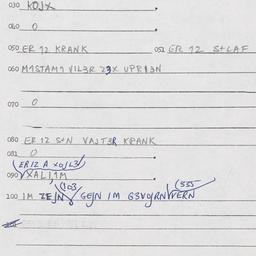 030 KOJX
040 O
050 ER 12 KRANK 051 ER 12 S+LAF
060 M1STAM1 VIL3R 23X UPR13N
070 O
080 ER 12 S+N VAJT3R KRANK
081 O
(ER 12 A XO/L3)
090 XALJ,1M
(103 (335
100 IM ZE/N GE/N IM G3VO/RN VERN